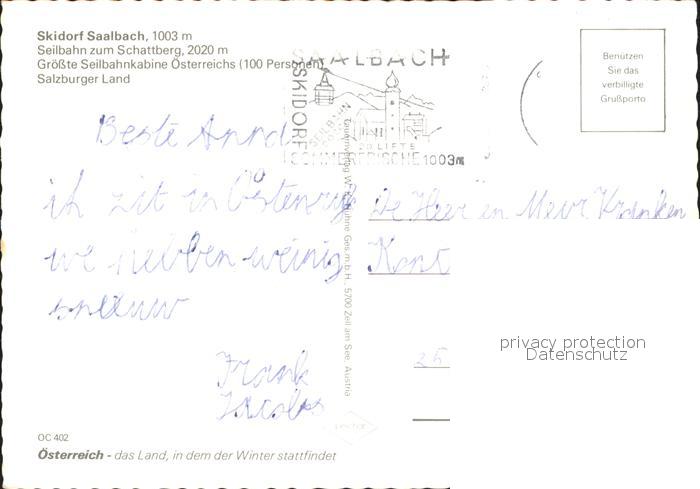 Skidorf Saalbach, 1003 m
Seilbahn zum Schattberg, 2020 m
Größte Seilbahnkabine Österreichs (100 Personen)
Salzburger Land
SAALBACH
SKIDORF
SEILBAHN
20 LIFTE
SOMMERFRISCHE 1003m
Benützen
Sie das
verbilligte
Grußporto
Beste
ik zit in Oostenryk
we hebben weinig
sneeuw
Frank
Jacobs
De Heer en Mevr Kranken
25
Ges.m.b.H., 5700 Zell am See, Austria
privacy protection
Datenschutz
OC 402
Österreich - das Land, in dem der Winter stattfindet